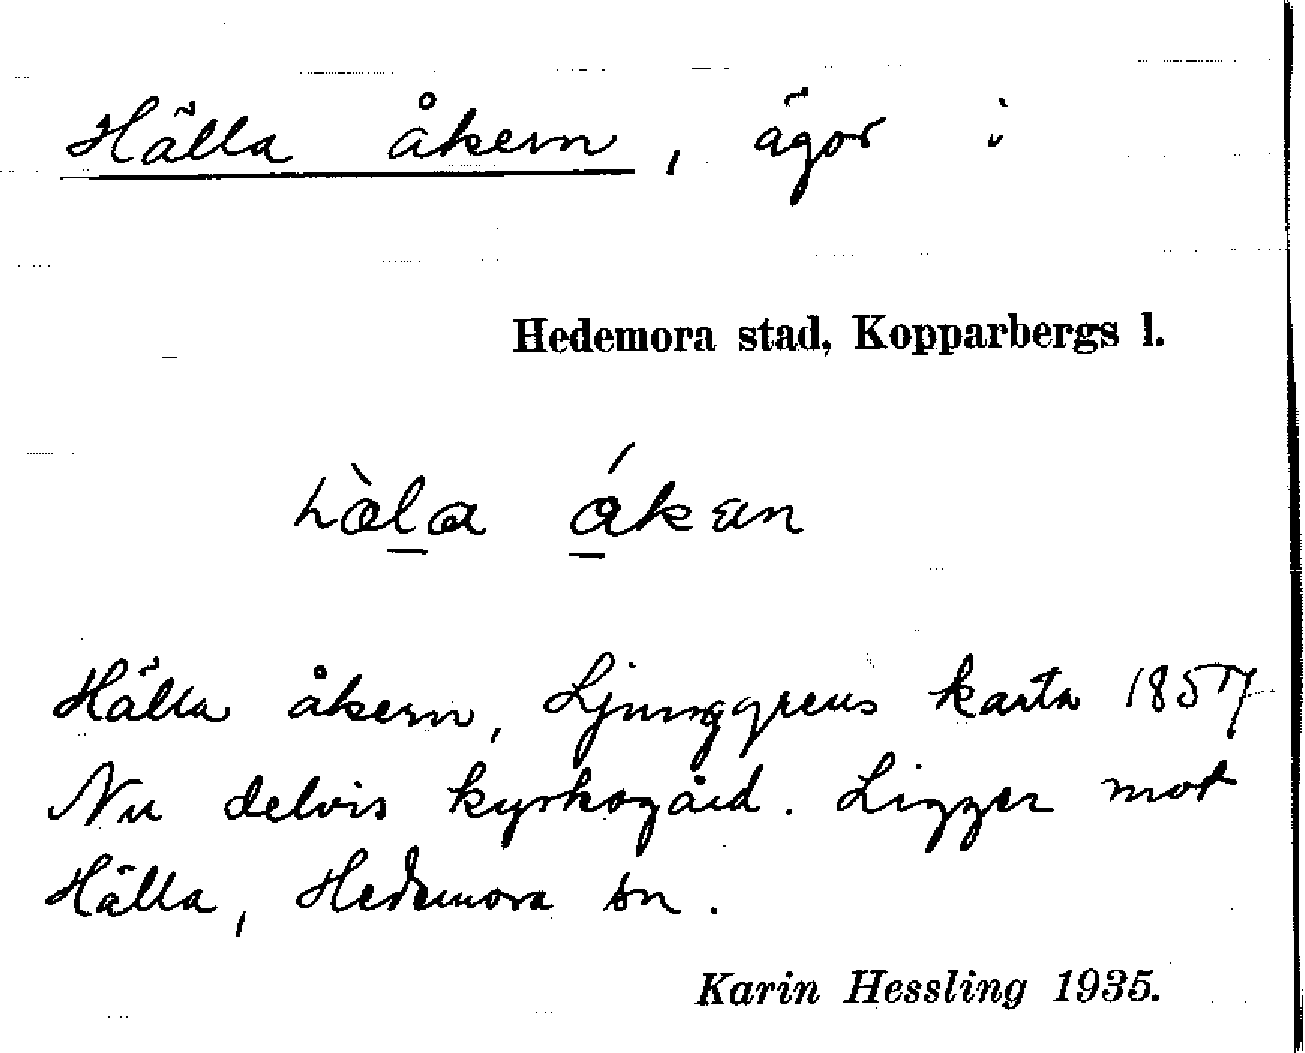 Hälla åkern, ägor i
Hedemora stad, Kopparbergs l.
hæ̀la ákan
Hälla åkern, Ljunggrens karta 1857
Nu delvis kyrkogård. Ligger mot
Hälla, Hedemora sn.
Karin Hessling 1935.